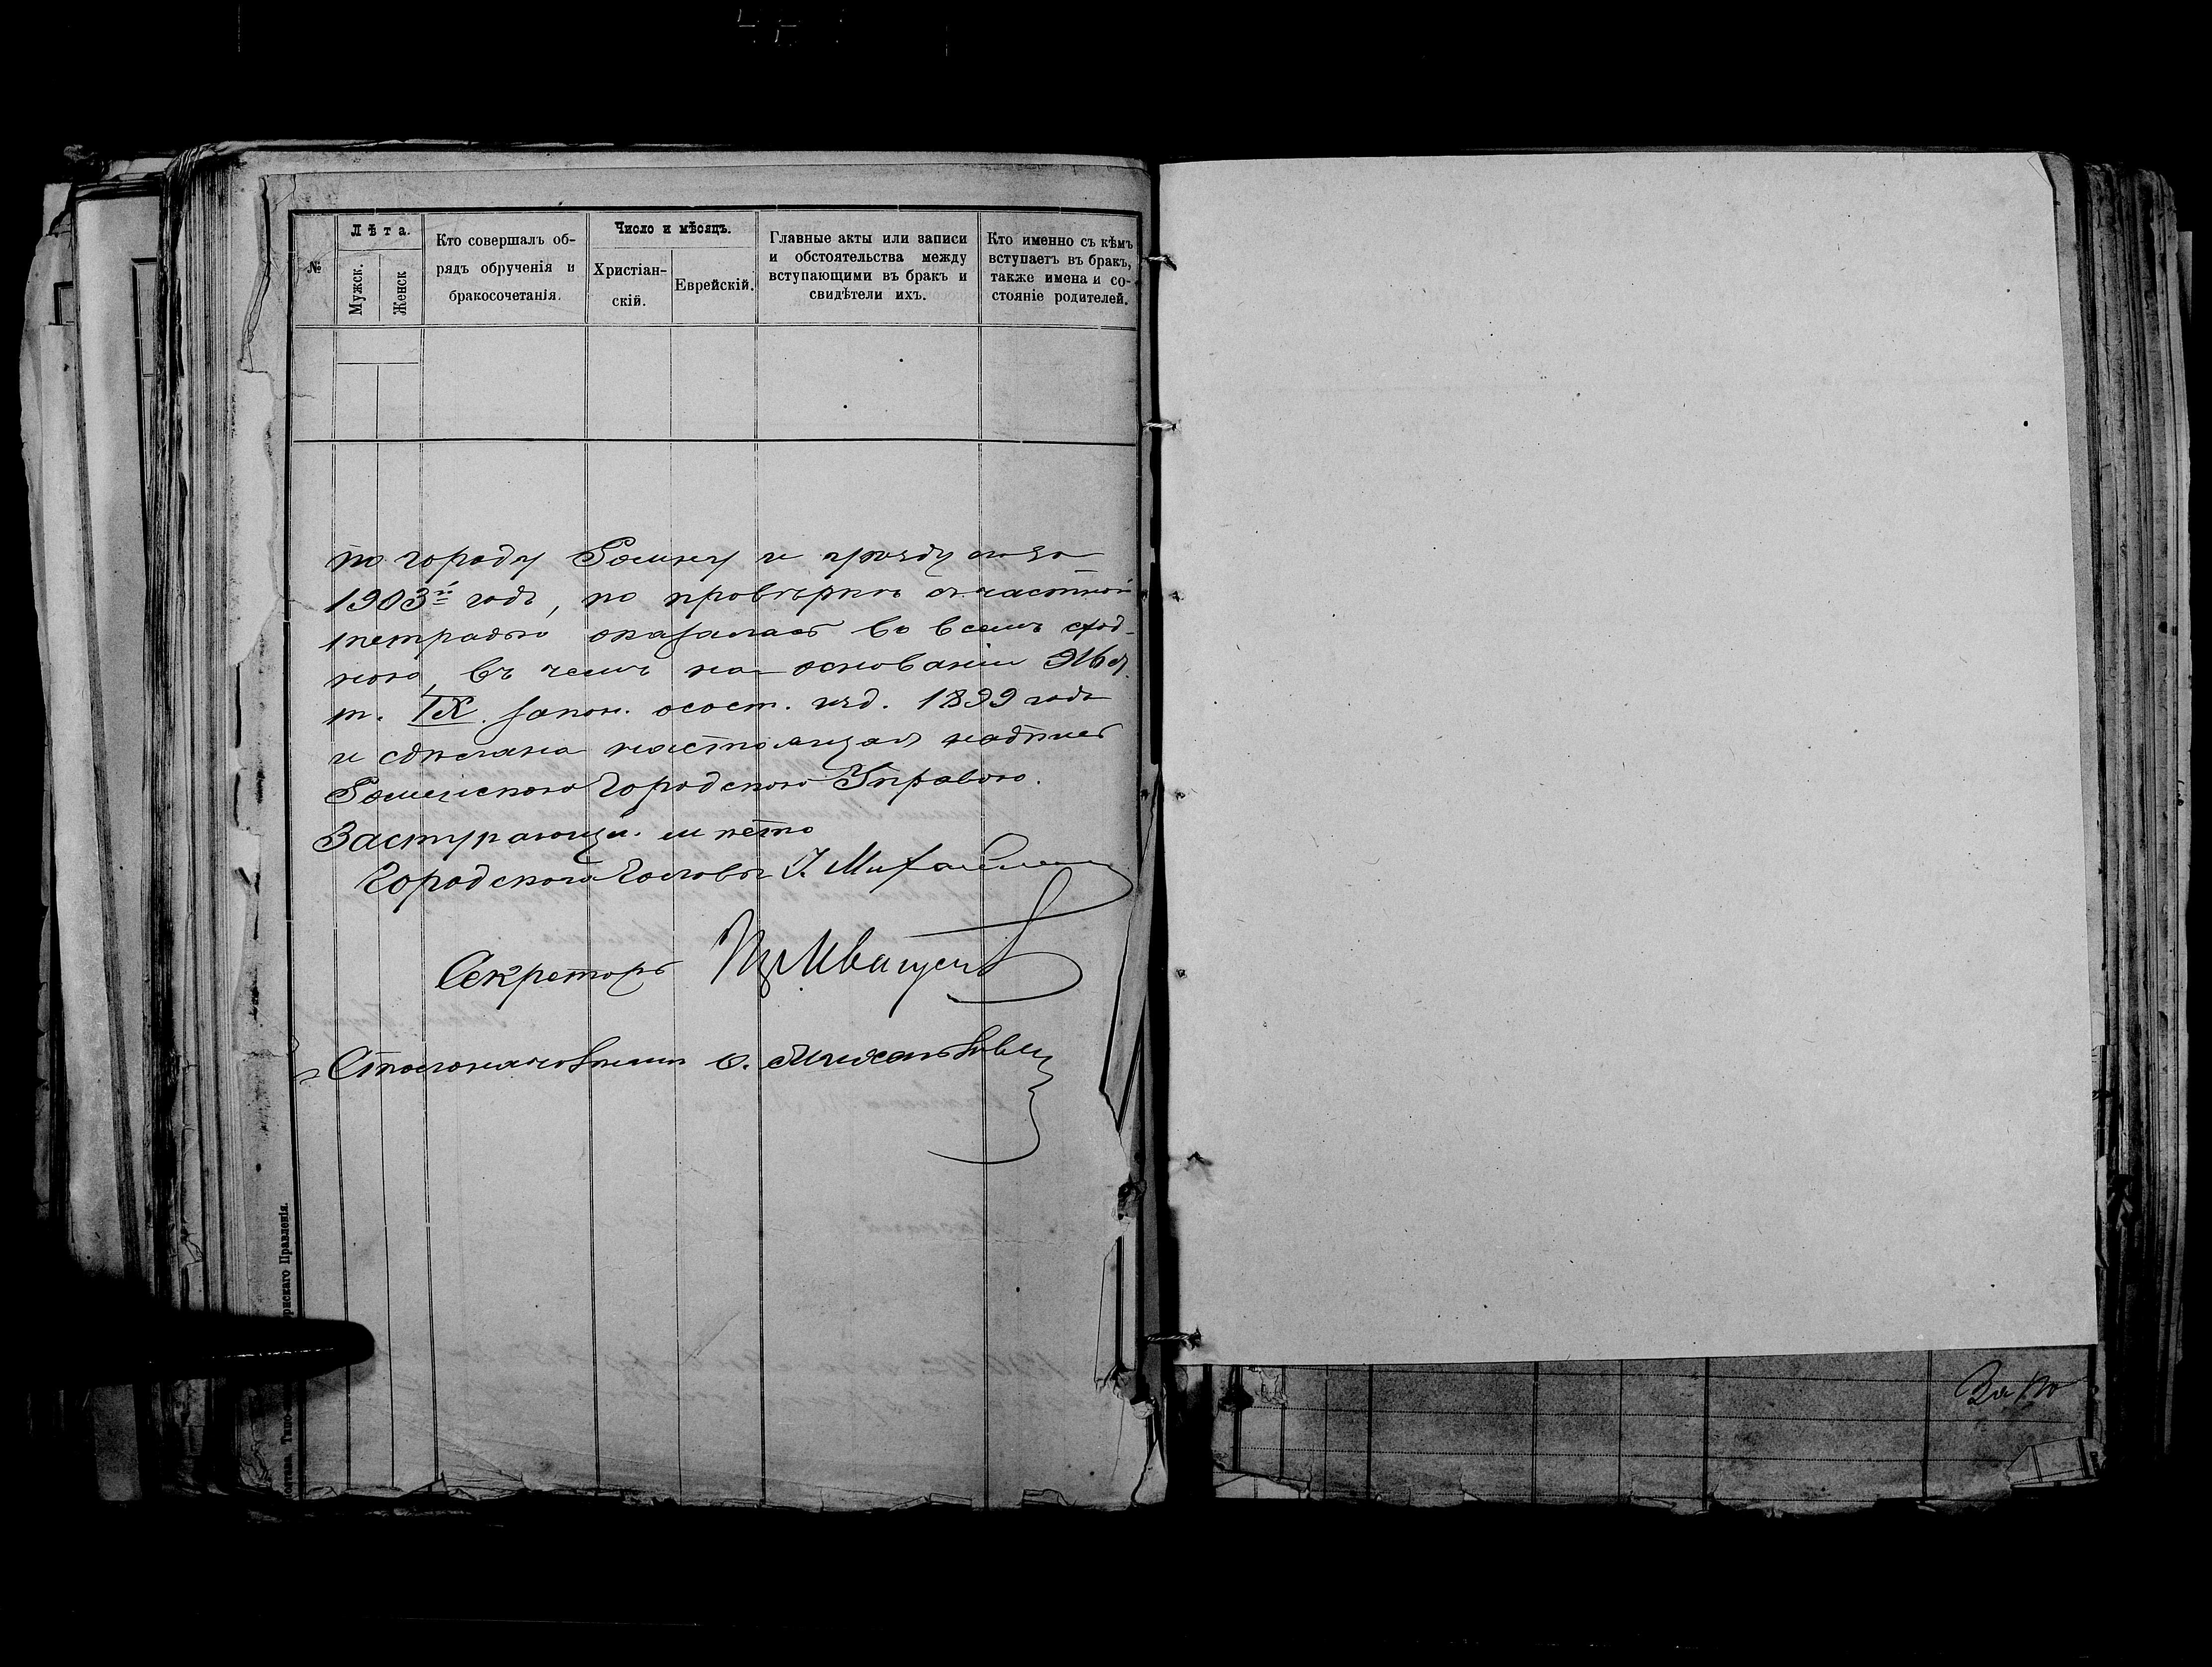 №
Лѣта.
Мужск.
Женск
Кто совершалъ об-
рядъ обрученія и
бракосочетанія.
Число и мѣсяцъ.
Христіан-
скій.
Еврейскій.
Главные акты или записи
и обстоятельства между
вступающими въ бракъ и
свидѣтели ихъ.
Кто именно съ кѣмъ
вступаетъ въ бракъ,
также имена и со-
стояніе родителей.
по городу Ромну и уѣзду онаго за
1903й годъ, по провѣркѣ съ частной
тетрадью оказалась во всемъ сход-
ною, въ чемъ на основаніи 916 ст.
т. IX. закон. о сост. изд. 1899 года
и сдѣлана настоящая надпись
Роменскою Городскою Управою.
Заступающій мѣсто
Городского Головы І.
Секретарь
Столоначальникъ
рнскаго Правленія.